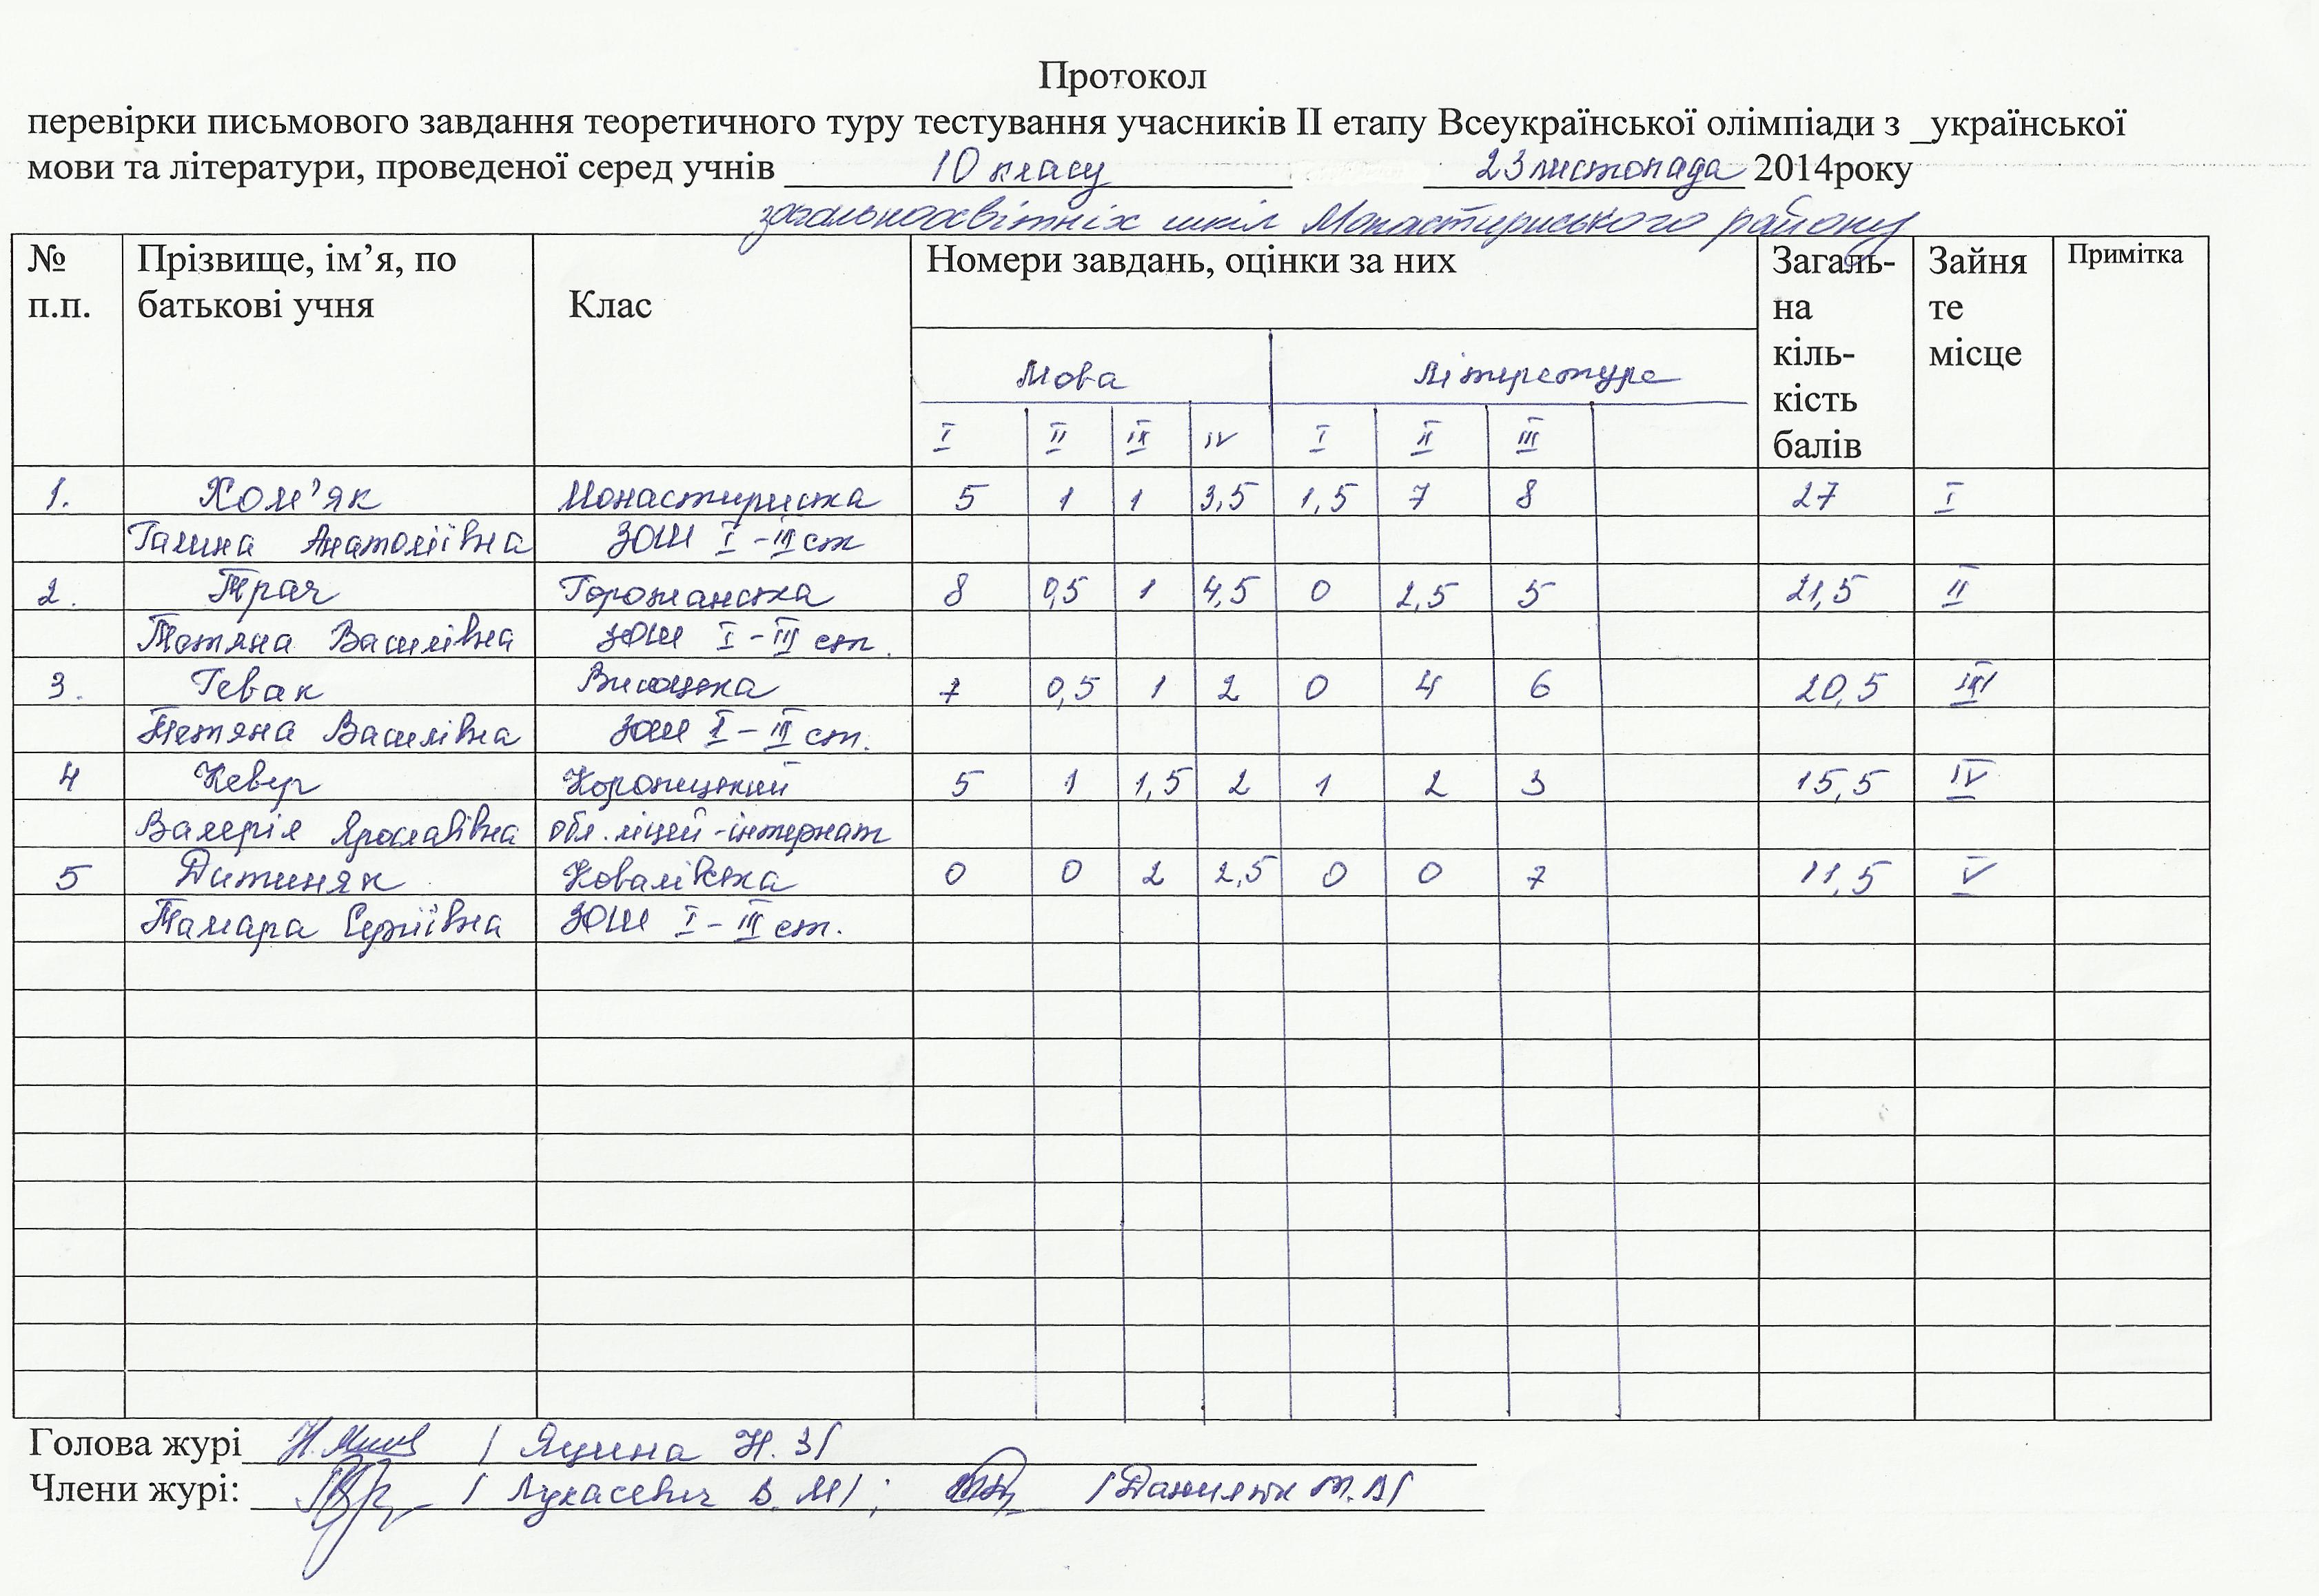 Протокол
перевірки письмового завдання теоретичного туру тестування учасників ІІ етапу Всеукраїнської олімпіади з _української
мови та літератури, проведеної серед учнів 10 класу 23 листопада 2014року
загальноосвітніх шкіл Монастириського району
№ п.п. Прізвище, ім’я, по батькові учня Клас Номери завдань, оцінки за них Загаль-на кіль-кість балів Зайня те місце Примітка
Мова Література
I II III IV I II III
1. Хом’як Монастириська 5 1 1 3,5 1,5 7 8 27 I
Галина Анатоліївна ЗОШ I-III ст
2. Трач Горожанська 8 0,5 1 4,5 0 2,5 5 21,5 II
Тетяна Василівна ЗОШ I-III ст.
3. Гевак Висоцька 7 0,5 1 2 0 4 6 20,5 III
Тетяна Василівна ЗОШ I-III ст.
4 Кевер Коропецький 5 1 1,5 2 1 2 3 15,5 IV
Валерія Ярославівна обл. ліцей-інтернат
5 Дитиняк Ковалівська 0 0 2 2,5 0 0 7 11,5 V
Тамара Сергіївна ЗОШ I-III ст.
Голова журі / Яцина Н. З/
Члени журі: / Лукасевич В. М/ ; / Данилюк Т. В/